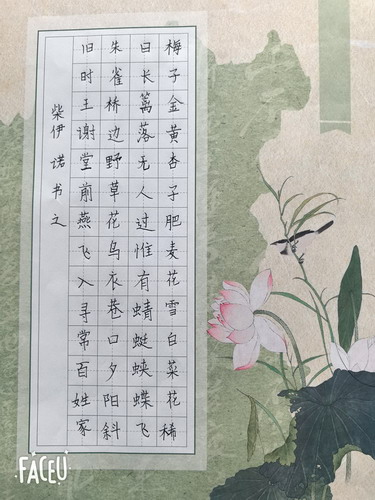 梅子金黄杏子肥麦花雪白菜花稀
日长篱落无人过惟有蜻蜓蛱蝶飞
朱雀桥边野草花乌衣巷口夕阳斜
旧时王谢堂前燕飞入寻常百姓家
柴伊诺书之
FACEU